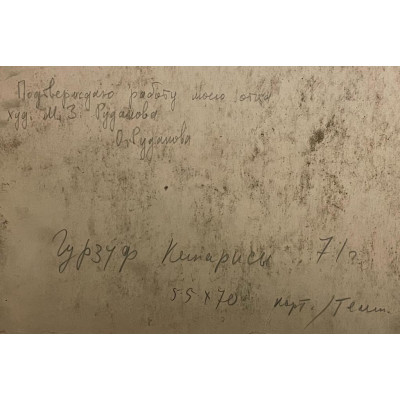 Подтверждаю работу моего отца
худ. М. З. Рудакова
О. Рудакова
Гурзуф Кипарисы 71г.
55 x 70
карт./Темп.